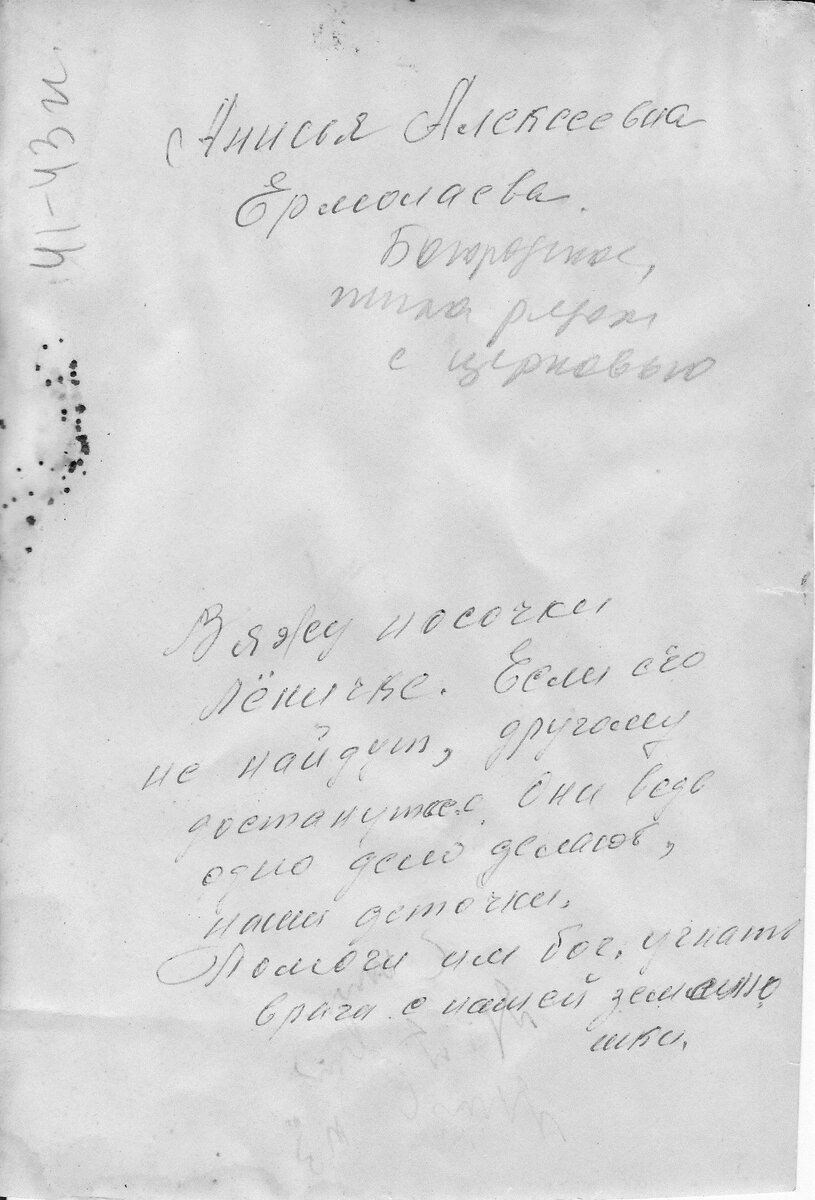 41-43 г.
Анисья Алексеевна
Ермолаева.
Богородское,
с церковью
Вяжу носочки
Лёничке. Если его
не найдут, другому
достанутся. Они ведь
одно дело делают,
наши деточки.
Помоги им бог, угнать
врага с нашей землюшки.